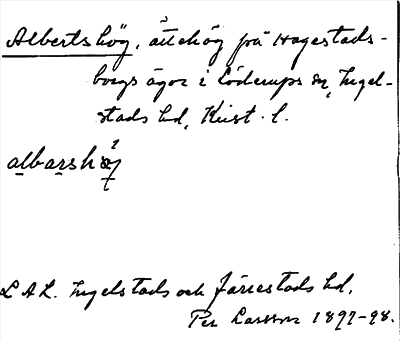 Albertshög, ättehög på Hagestads-
borgs ägor i Löderups sn, Ingel-
stads hd, Krist. l.
albarshö
L A L. Ingelstads och Järrestads hd,
Per Larsson 1897-98.